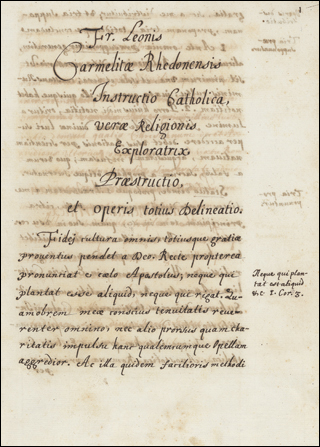 1
Fr. Leonis
Carmelitæ Rhedonensis
Instructio Catholica,
veræ Religionis
Exploratrix.
Præstructio,
et operis totius Delineatio.
Fidei cultura omnis totiusque gratiæ
proventus pendet a Deo. Recte propterea
pronunciat e cælo Apostolus, neque qui
plantat esse aliquid, neque qui rigat. Qu-
amobrem meæ conscius tenuitatis reve-
renter omnino, nec alio prorsus quam cha-
ritatis impulsu hanc qualemcumque Opellam
aggredior. Ac illa quidem facilioris methodi
Neque qui plan-
tat est aliquid
&c 1. Cor. 3.